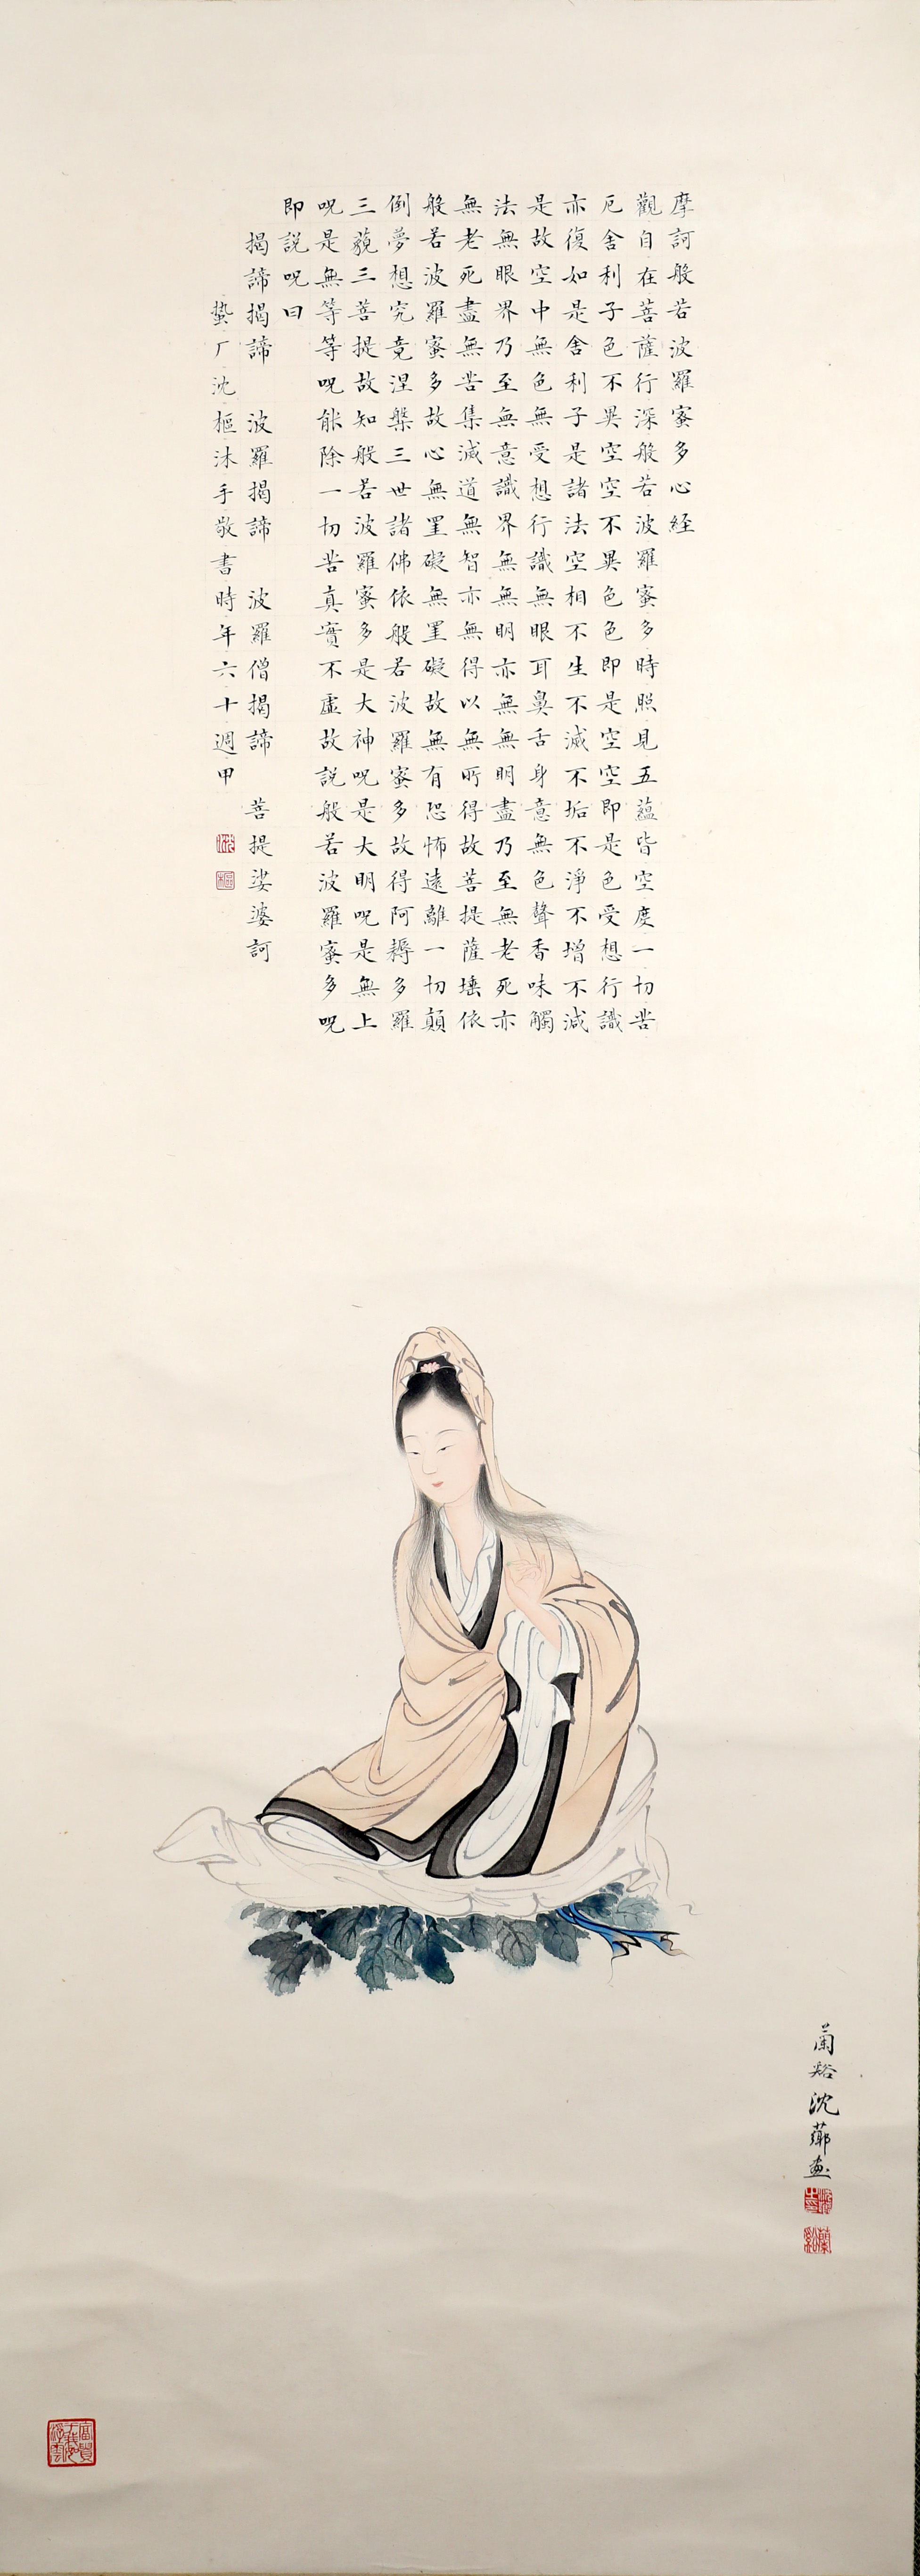 摩訶般若波羅蜜多心経
觀自在菩薩行深般若波羅蜜多時照見五蘊皆空度一切苦
厄舍利子色不異空空不異色色即是空空即是色受想行識
亦復如是舍利子是諸法空相不生不滅不垢不淨不增不減
是故空中無色無受想行識無眼耳鼻舌身意無色聲香味觸
法無眼界乃至無意識界無無明亦無無明盡乃至無老死亦
無老死盡無苦集滅道無智亦無得以無所得故菩提薩埵依
般若波羅蜜多故心無罣礙無罣礙故無有恐怖遠離一切顛
倒夢想究竟涅槃三世諸佛依般若波羅蜜多故得阿耨多羅
三藐三菩提故知般若波羅蜜多是大神呪是大明呪是無上
呪是無等等呪能除一切苦真實不虛故說般若波羅蜜多呪
即說呪曰
揭諦揭諦 波羅揭諦 波羅僧揭諦 菩提娑婆訶
蟄厂沈樞沐手敬書時年六十週甲
沈
樞
蘭谿沈薌畫
蘭谿
富貴于我如浮雲